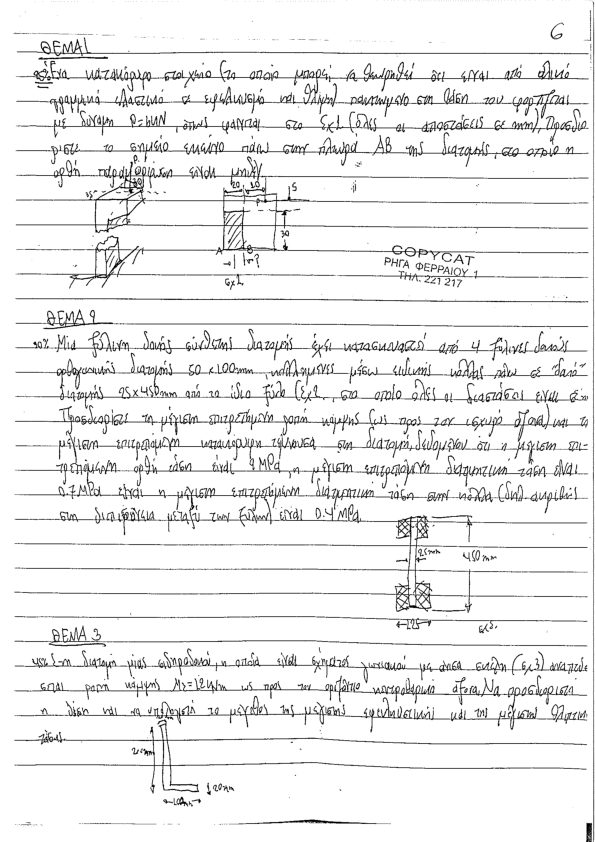 6
ΘΕΜΑ 1
25% Ένα κατακόρυφο στοιχείο (το οποίο μπορεί να θεωρηθεί ότι είναι από υλικό
γραμμικά ελαστικό σε εφελκυσμό και θλίψη) πακτωμένο στη βάση του φορτίζεται
με δύναμη P=4kN, όπως φαίνεται στο Σχ1 (όλες οι αποστάσεις σε mm), Προσδιο
ρίστε το σημείο εκείνο πάνω στην πλευρά AB της διατομής, στο οποίο η
ορθή παραμόρφωση είναι μηδέν
P
20 20 5
30
A B
Σχ1
COPYCAT
ΡΗΓΑ ΦΕΡΡΑΙΟΥ 1
ΤΗΛ. 221 217
ΘΕΜΑ 2
30% Μια ξύλινη δοκός σύνθετης διατομής έχει κατασκευαστεί από 4 ξύλινες δοκούς
ορθογωνικής διατομής 50 x 100mm, κολλημένες μέσω ειδικής κόλλας πάνω σε δοκό
διατομής 25x450mm από το ίδιο ξύλο (Σχ2, στο οποίο όλες οι διαστάσεις είναι σε mm
Προσδιορίστε τη μέγιστη επιτρεπόμενη ροπή κάμψης (ως προς τον ισχυρό άξονα) και τη
μέγιστη επιτρεπόμενη κατακόρυφη τέμνουσα στη διατομή, δεδομένου ότι η μέγιστη επι-
τρεπόμενη ορθή τάση είναι MPa, η μέγιστη επιτρεπόμενη διατμητική τάση είναι
0.7MPa είναι η μέγιστη επιτρεπόμενη διατμητική τάση στην κόλλα (δηλ. ακριβώς
στη διεπιφάνεια μεταξύ των ξύλων) είναι 0.4 MPa.
25mm
450mm
125
ΘΕΜΑ 3
45% Στη διατομή μιας σιδηροδοκού, η οποία είναι σχήματος γωνιακού με άνισα σκέλη (Σχ3) αναπτύσ
σεται ροπή κάμψης kNm ως προς τον οριζόντιο κεντροβαρικό άξονα. Να προσδιοριστεί
η θέση και να υπολογιστεί το μέγεθος της μέγιστης εφελκυστικής και της μέγιστης θλιπτικής
τάσης.
200mm
20mm
100mm